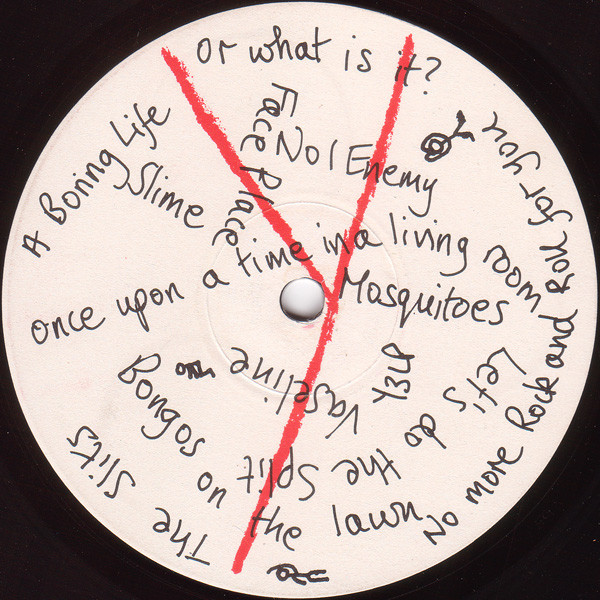 Or what is it?
A Boring Life
Slime
Face Place
No 1 Enemy
once upon a time in a living room
Mosquitoes
Vaseline
Let's do the Split
Bongos on the lawn
No more Rock and Roll for you
The Slits
Y3LP